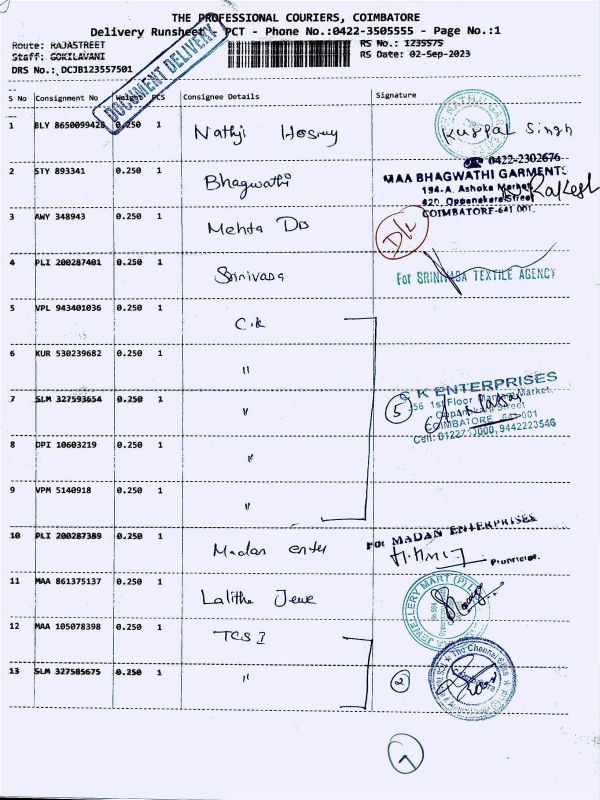 THE PROFESSIONAL COURIERS, COIMBATORE
Delivery Runsheet - PCT - Phone No.:0422-3505555 - Page No.:1
Route: RAJASTREET
RS No.: 1235575
Staff: GOKILAVANI
RS Date: 02-Sep-2023
DRS No.: DCJB123557501
DOCUMENT DELIVERY
S No Consignment No Weight PCS Consignee Details Signature
1 BLY 8650099428 0.250 1 Nathji Kuspal Singh
2 STY 893341 0.250 1 Bhagwathi
0422-2302676
MAA BHAGWATHI GARMENTS
194-A. Ashoka Market
420, Oppanakara Street
COIMBATORE-641 001.
Rakesh
3 AWY 348943 0.250 1 Mehta D/L
4 PLI 200287401 0.250 1 Srinivasa
For SRINIVASA TEXTILE AGENCY
5 VPL 943401036 0.250 1 C.K
6 KUR 530239682 0.250 1 "
7 SLM 327593654 0.250 1 " 5
K ENTERPRISES
1st Floor Market,
Street
COIMBATORE 641 001
9442223546
8 DPI 10603219 0.250 1 "
9 VPM 5140918 0.250 1 "
10 PLI 200287389 0.250 1 Madan enter
For MADAN ENTERPRISES
Proprietor.
11 MAA 861375137 0.250 1 Lalitha Jewe
JEWELLERY MART (P) L
12 MAA 105078398 0.250 1 TCS I
The Chennai
13 SLM 327585675 0.250 1 " 2